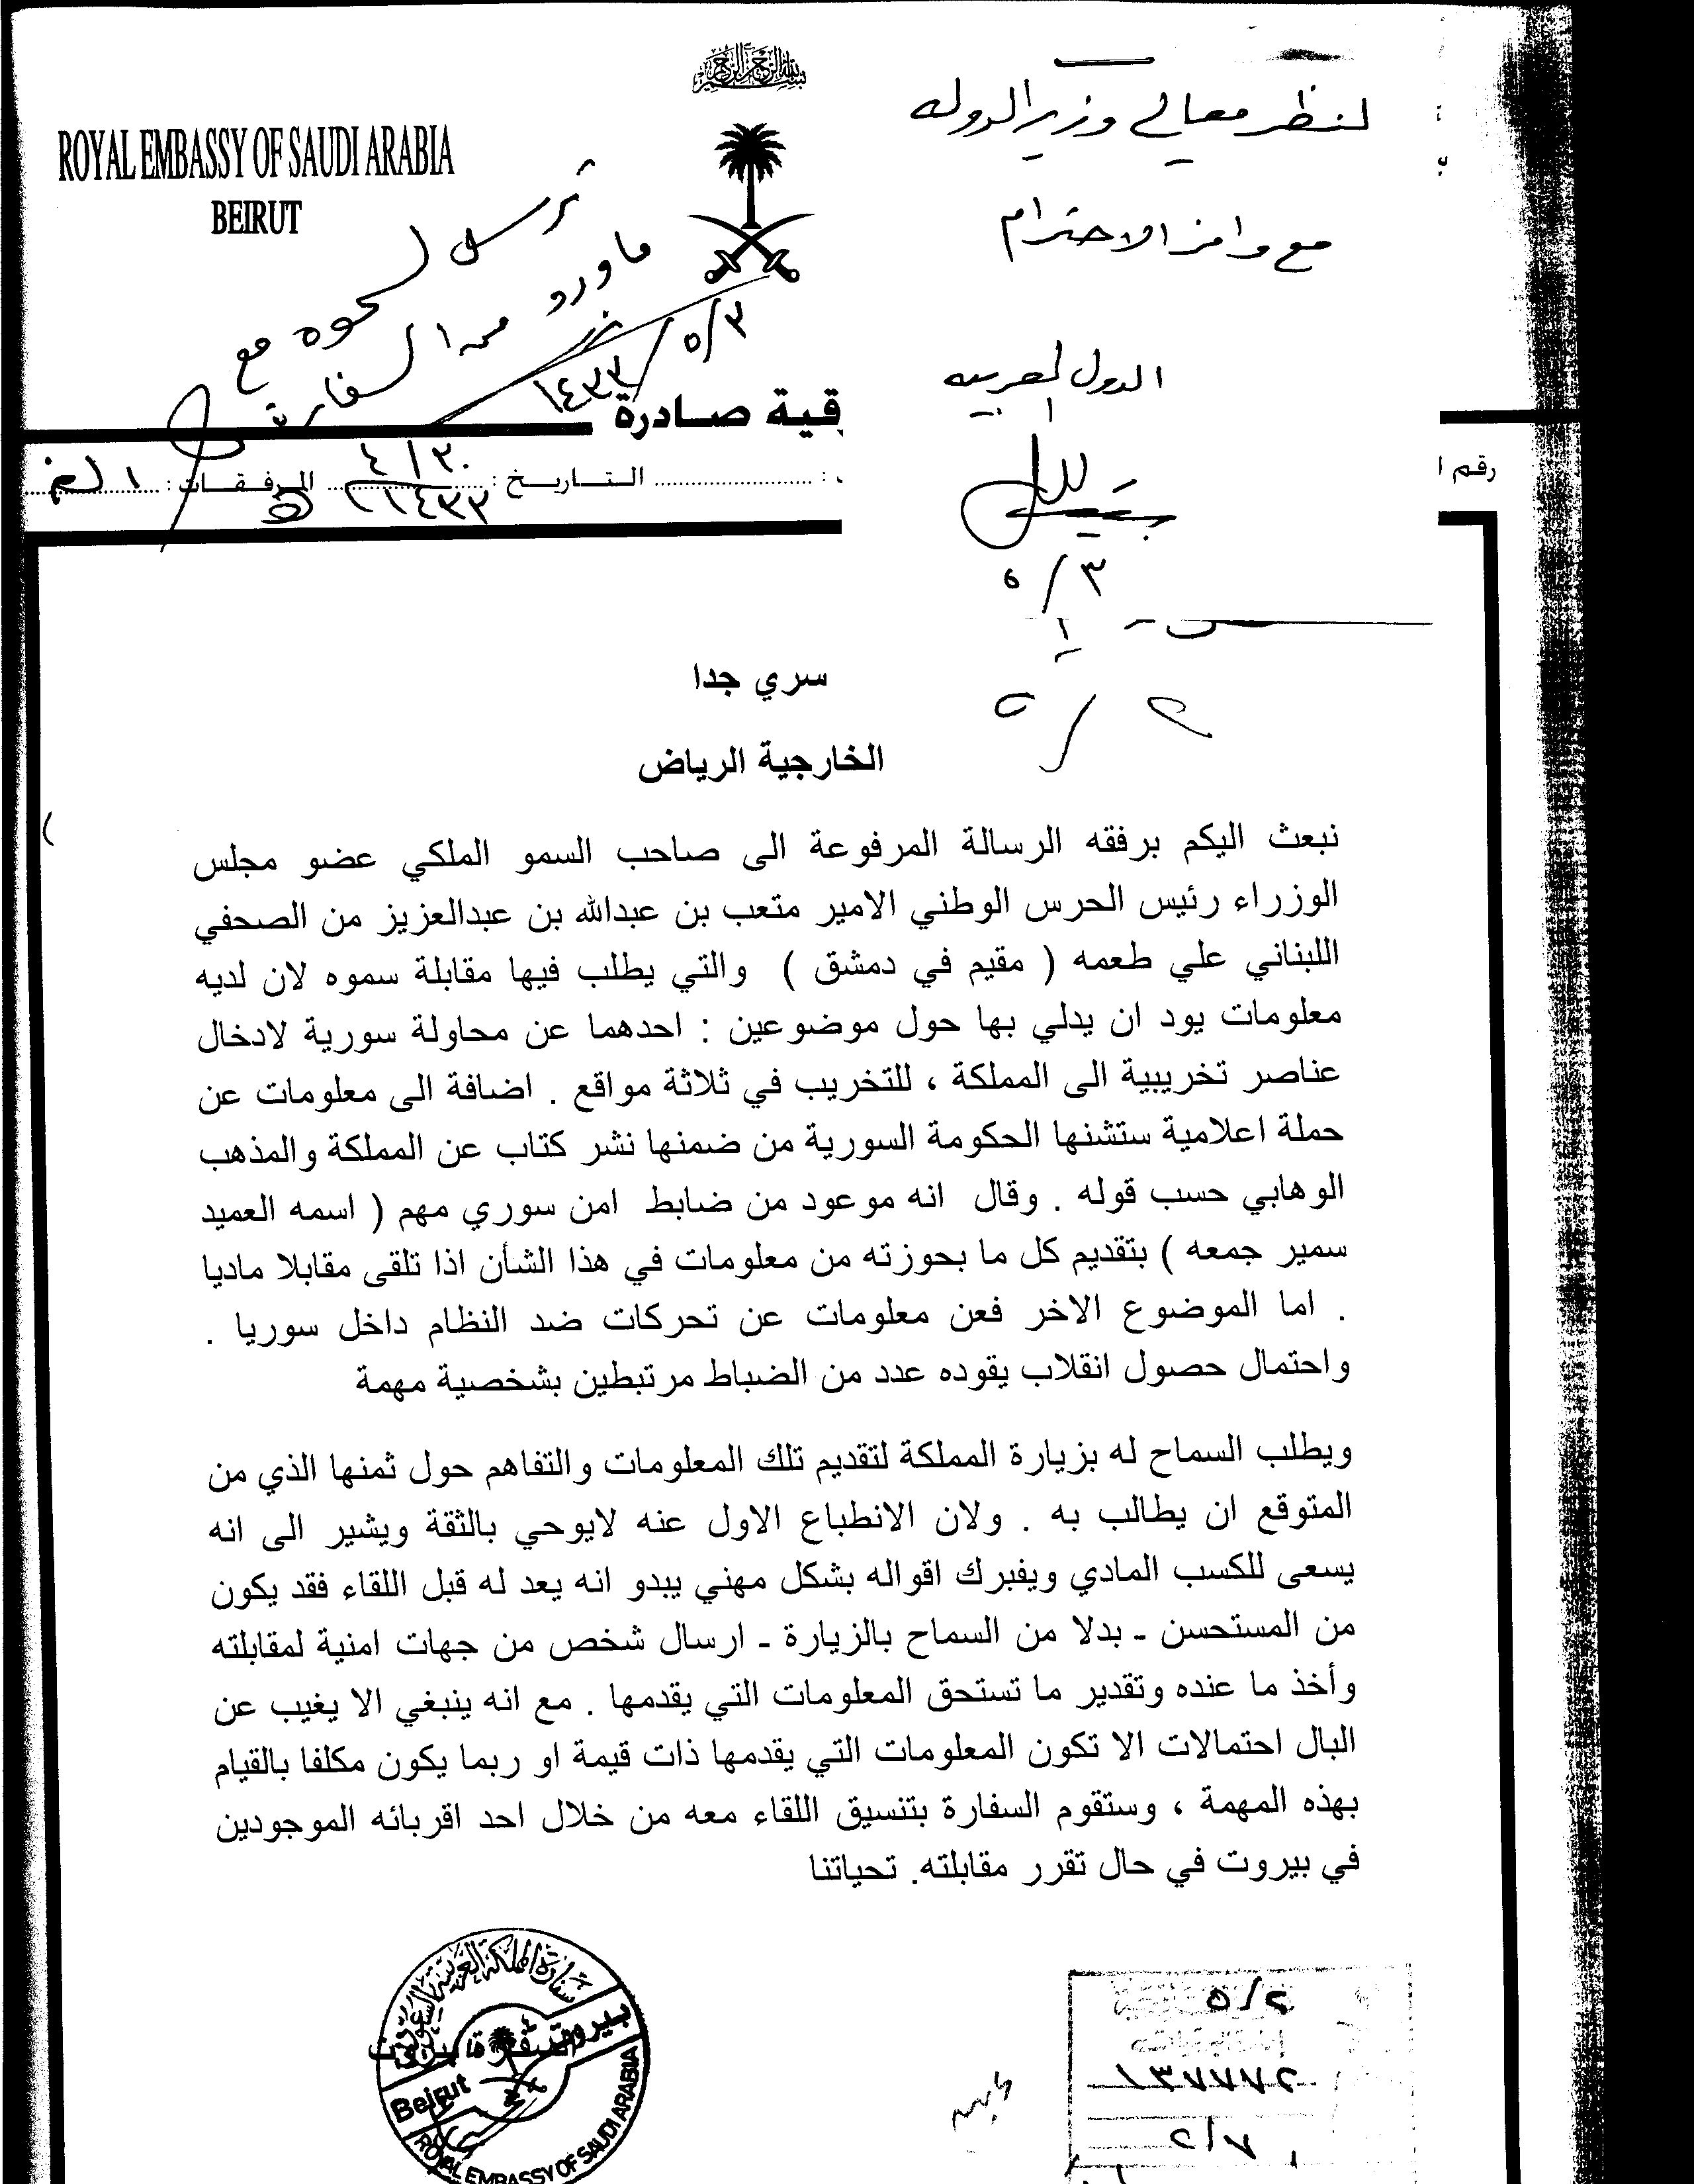 بسم الله الرحمن الرحيم
ROYAL EMBASSY OF SAUDI ARABIA
BEIRUT
لنظر معالي وزير الدولة
مع وافر الاحترام
ترسل لسموه مع
ما ورد من السفارة
٥/٣
١٤٣٣
الدول العربية
٥/٣
قية صادرة
رقم ا
التاريخ : ٤/٣٠ ١٤٣٣ المرفقات :
سري جدا
٥/٢
الخارجية الرياض
نبعث اليكم برفقه الرسالة المرفوعة الى صاحب السمو الملكي عضو مجلس
الوزراء رئيس الحرس الوطني الامير متعب بن عبدالله بن عبدالعزيز من الصحفي
اللبناني علي طعمه ( مقيم في دمشق ) والتي يطلب فيها مقابلة سموه لان لديه
معلومات يود ان يدلي بها حول موضوعين : احدهما عن محاولة سورية لادخال
عناصر تخريبية الى المملكة ، للتخريب في ثلاثة مواقع . اضافة الى معلومات عن
حملة اعلامية ستشنها الحكومة السورية من ضمنها نشر كتاب عن المملكة والمذهب
الوهابي حسب قوله . وقال انه موعود من ضابط امن سوري مهم ( اسمه العميد
سمير جمعه ) بتقديم كل ما بحوزته من معلومات في هذا الشأن اذا تلقى مقابلا ماديا
. اما الموضوع الاخر فعن معلومات عن تحركات ضد النظام داخل سوريا .
واحتمال حصول انقلاب يقوده عدد من الضباط مرتبطين بشخصية مهمة
ويطلب السماح له بزيارة المملكة لتقديم تلك المعلومات والتفاهم حول ثمنها الذي من
المتوقع ان يطالب به . ولان الانطباع الاول عنه لايوحي بالثقة ويشير الى انه
يسعى للكسب المادي ويفبرك اقواله بشكل مهني يبدو انه يعد له قبل اللقاء فقد يكون
من المستحسن - بدلا من السماح بالزيارة - ارسال شخص من جهات امنية لمقابلته
وأخذ ما عنده وتقدير ما تستحق المعلومات التي يقدمها . مع انه ينبغي الا يغيب عن
البال احتمالات الا تكون المعلومات التي يقدمها ذات قيمة او ربما يكون مكلفا بالقيام
بهذه المهمة ، وستقوم السفارة بتنسيق اللقاء معه من خلال احد اقربائه الموجودين
في بيروت في حال تقرر مقابلته. تحياتنا
سفارة المملكة العربية السعودية
بيروت
Beirut
ROYAL EMBASSY OF SAUDI ARABIA
٥/٢
١٣٧٧٧٢